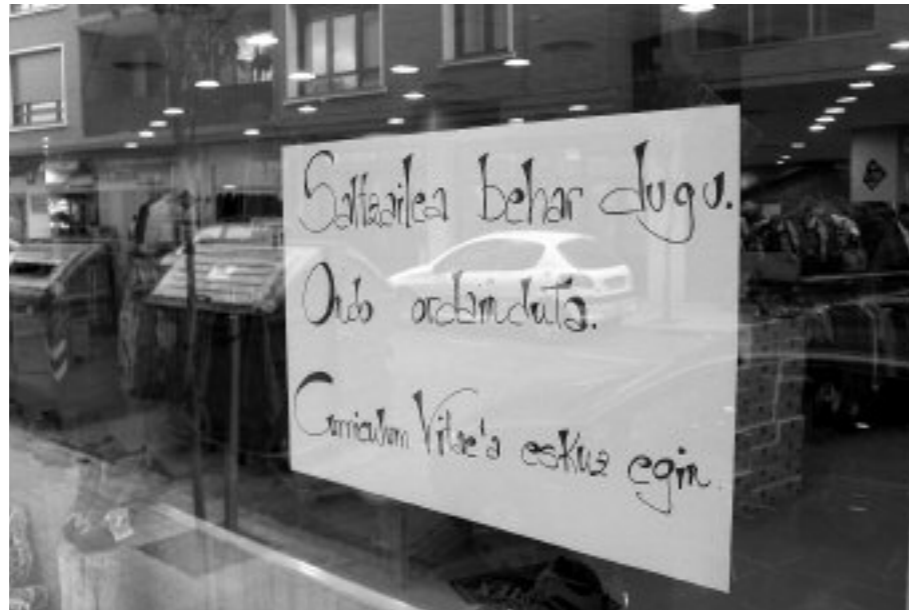 Saltzailea behar dugu.
Ondo ordainduta.
Curriculum Vitae'a eskuz egin.